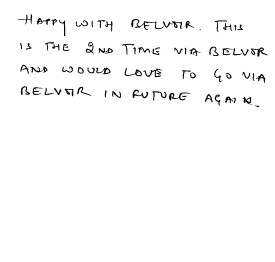 HAPPY WITH BELVOIR. THIS
IS THE 2ND TIME VIA BELVOIR
AND WOULD LOVE TO GO VIA
BELVOIR IN FUTURE AGAIN.